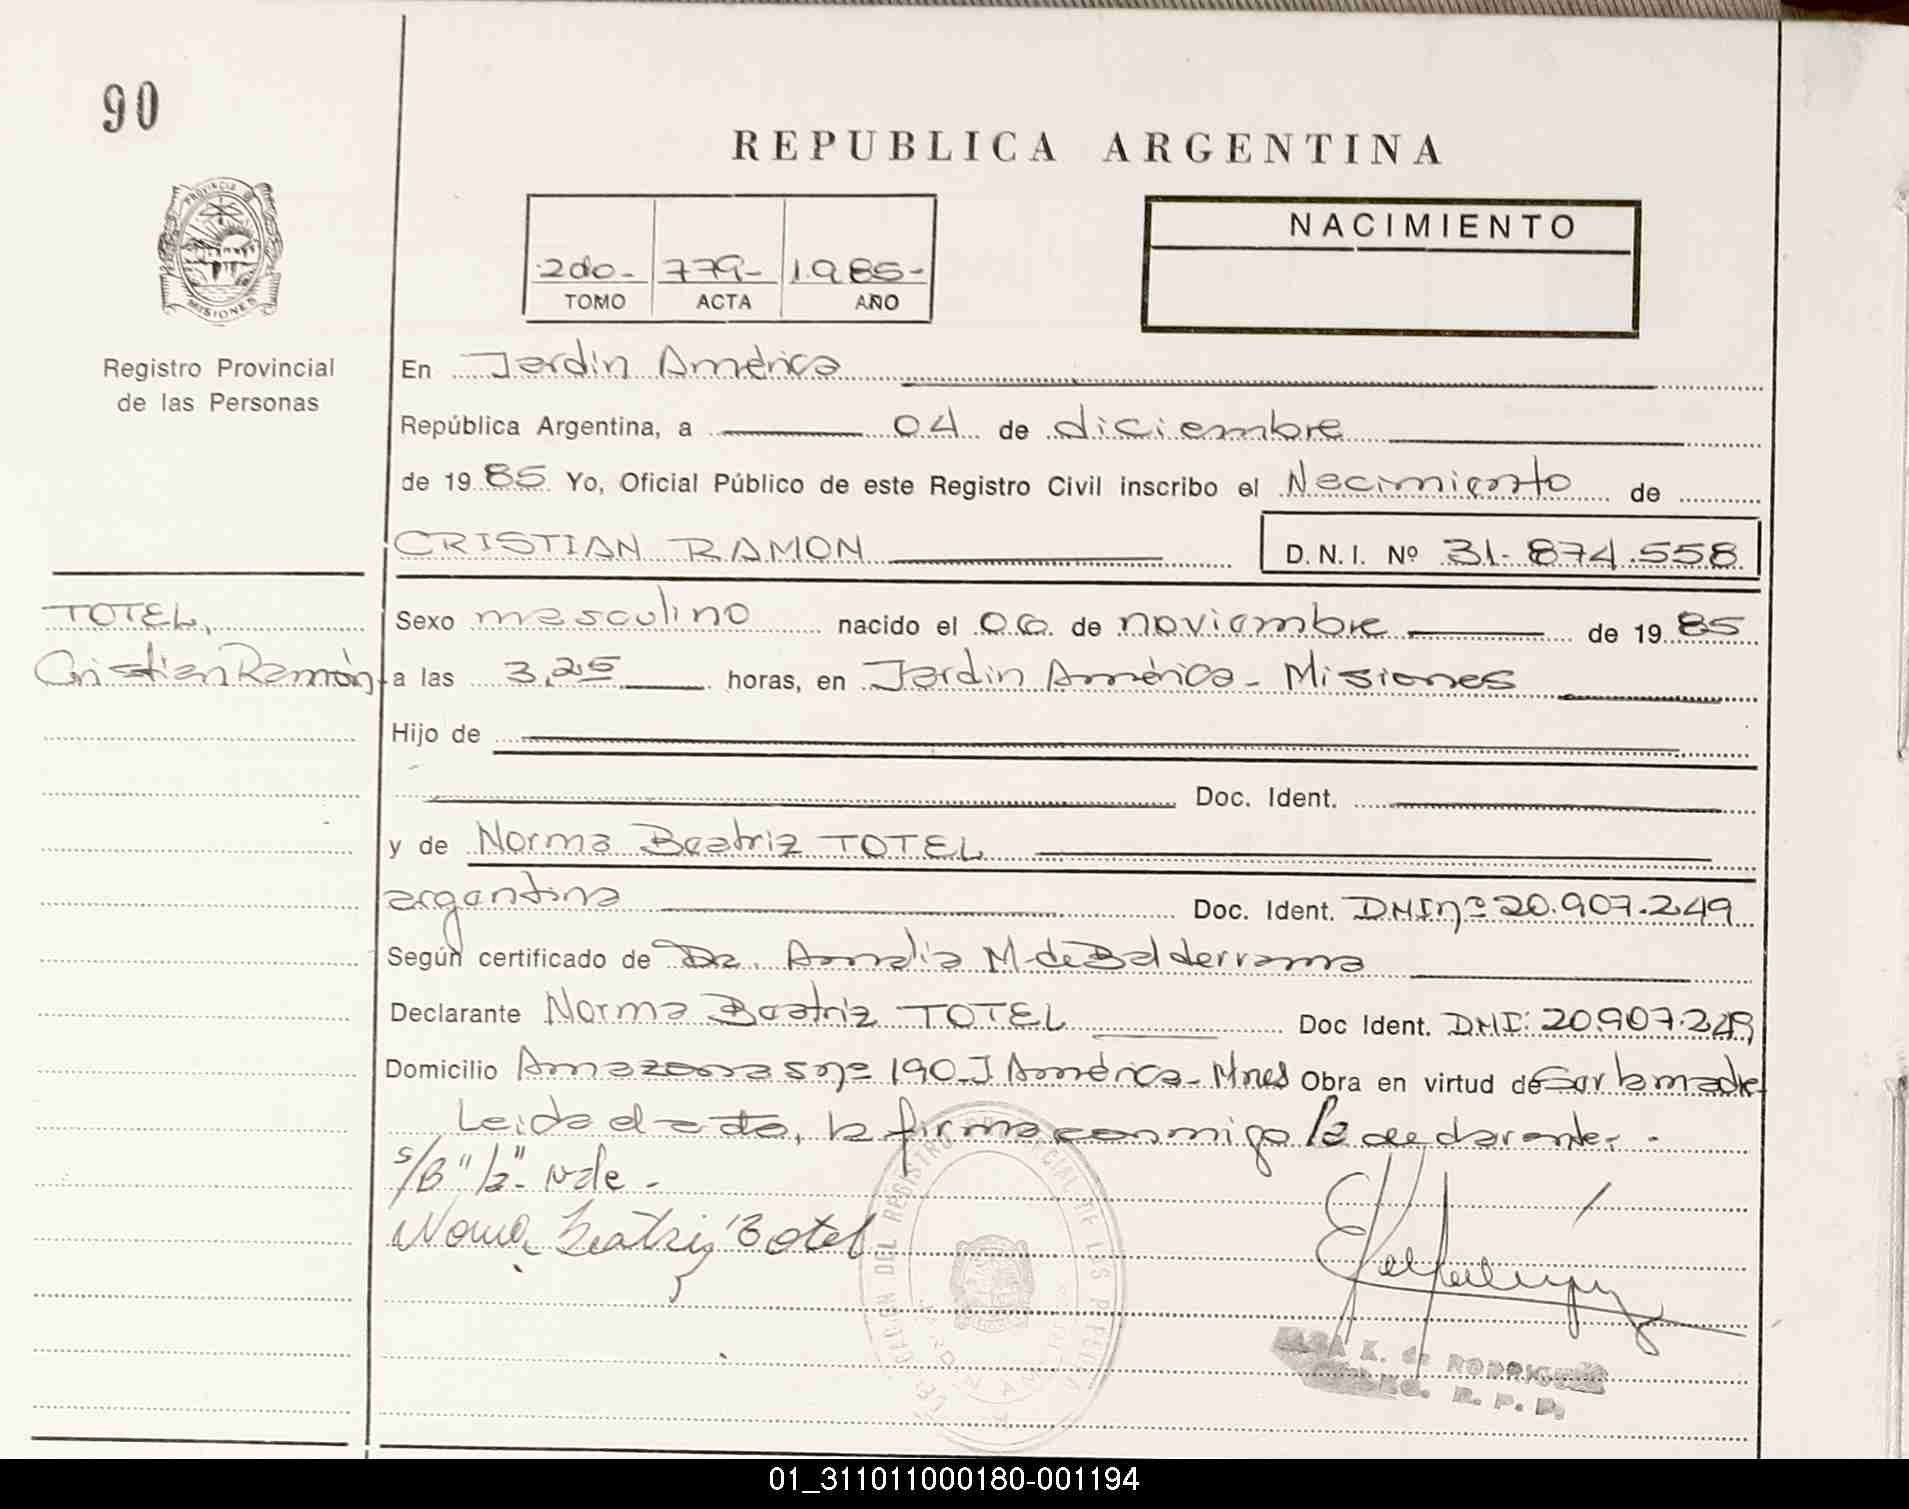 90
REPUBLICA ARGENTINA
PROVINCIA DE
MISIONES
Registro Provincial
de las Personas
2do- 779- 1985-
TOMO ACTA AÑO
NACIMIENTO
En Jardín América
República Argentina, a 04 de diciembre
de 1985 Yo, Oficial Público de este Registro Civil inscribo el Nacimiento de
CRISTIAN RAMON D.N.I. Nº 31.874.558
TOTEL,
Cristian Ramón
Sexo masculino nacido el 06 de noviembre de 1985
a las 3,25 horas, en Jardín América - Misiones
Hijo de
Doc. Ident.
y de Norma Beatriz TOTEL
argentina Doc. Ident. DNI nº 20.907.249
Según certificado de Dra. Amalia M. de Balderrama
Declarante Norma Beatriz TOTEL Doc Ident. DNI: 20.907.249
Domicilio Amazonas nº 190 - J América - Mnes Obra en virtud de ser la madre
Leida el acta, la firma conmigo la declarante. -
s/B "la" vale -
Norma Beatriz Totel
DEL REGISTRO PROVINCIAL DE LAS PERSONAS
K. de RODRIGUEZ
R. P. P.
01_311011000180-001194